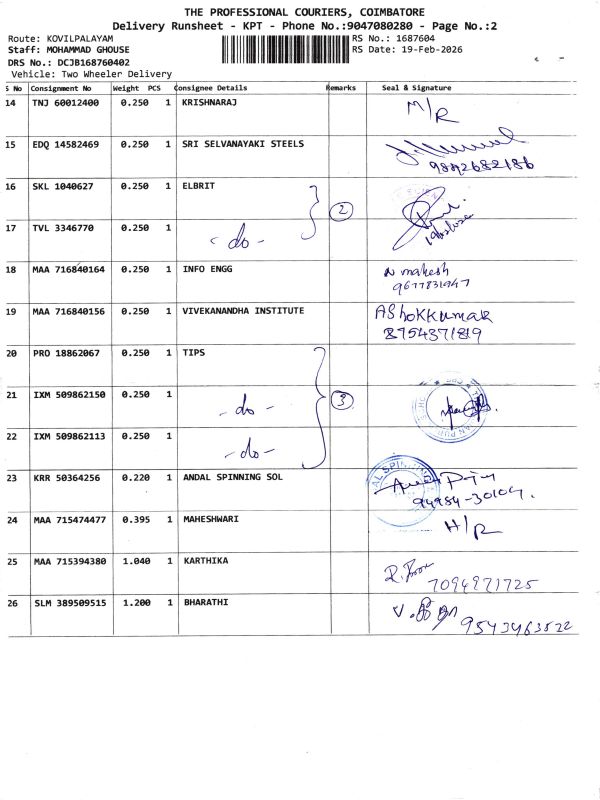 THE PROFESSIONAL COURIERS, COIMBATORE
Delivery Runsheet - KPT - Phone No.:9047080280 - Page No.:2
Route: KOVILPALAYAM
RS No.: 1687604
Staff: MOHAMMAD GHOUSE
RS Date: 19-Feb-2026
DRS No.: DCJB168760402
Vehicle: Two Wheeler Delivery
S No Consignment No Weight PCS Consignee Details Remarks Seal & Signature
14 TNJ 60012400 0.250 1 KRISHNARAJ M/R
15 EDQ 14582469 0.250 1 SRI SELVANAYAKI STEELS
9892682186
16 SKL 1040627 0.250 1 ELBRIT
2
17 TVL 3346770 0.250 1
- do -
18 MAA 716840164 0.250 1 INFO ENGG N mahesh
9677831947
19 MAA 716840156 0.250 1 VIVEKANANDHA INSTITUTE AShokkumar
8754371819
20 PRO 18862067 0.250 1 TIPS
21 IXM 509862150 0.250 1
- do - 3
22 IXM 509862113 0.250 1
- do -
23 KRR 50364256 0.220 1 ANDAL SPINNING SOL
94984-30104.
24 MAA 715474477 0.395 1 MAHESHWARI H/R
25 MAA 715394380 1.040 1 KARTHIKA
7094971725
26 SLM 389509515 1.200 1 BHARATHI
9543463522